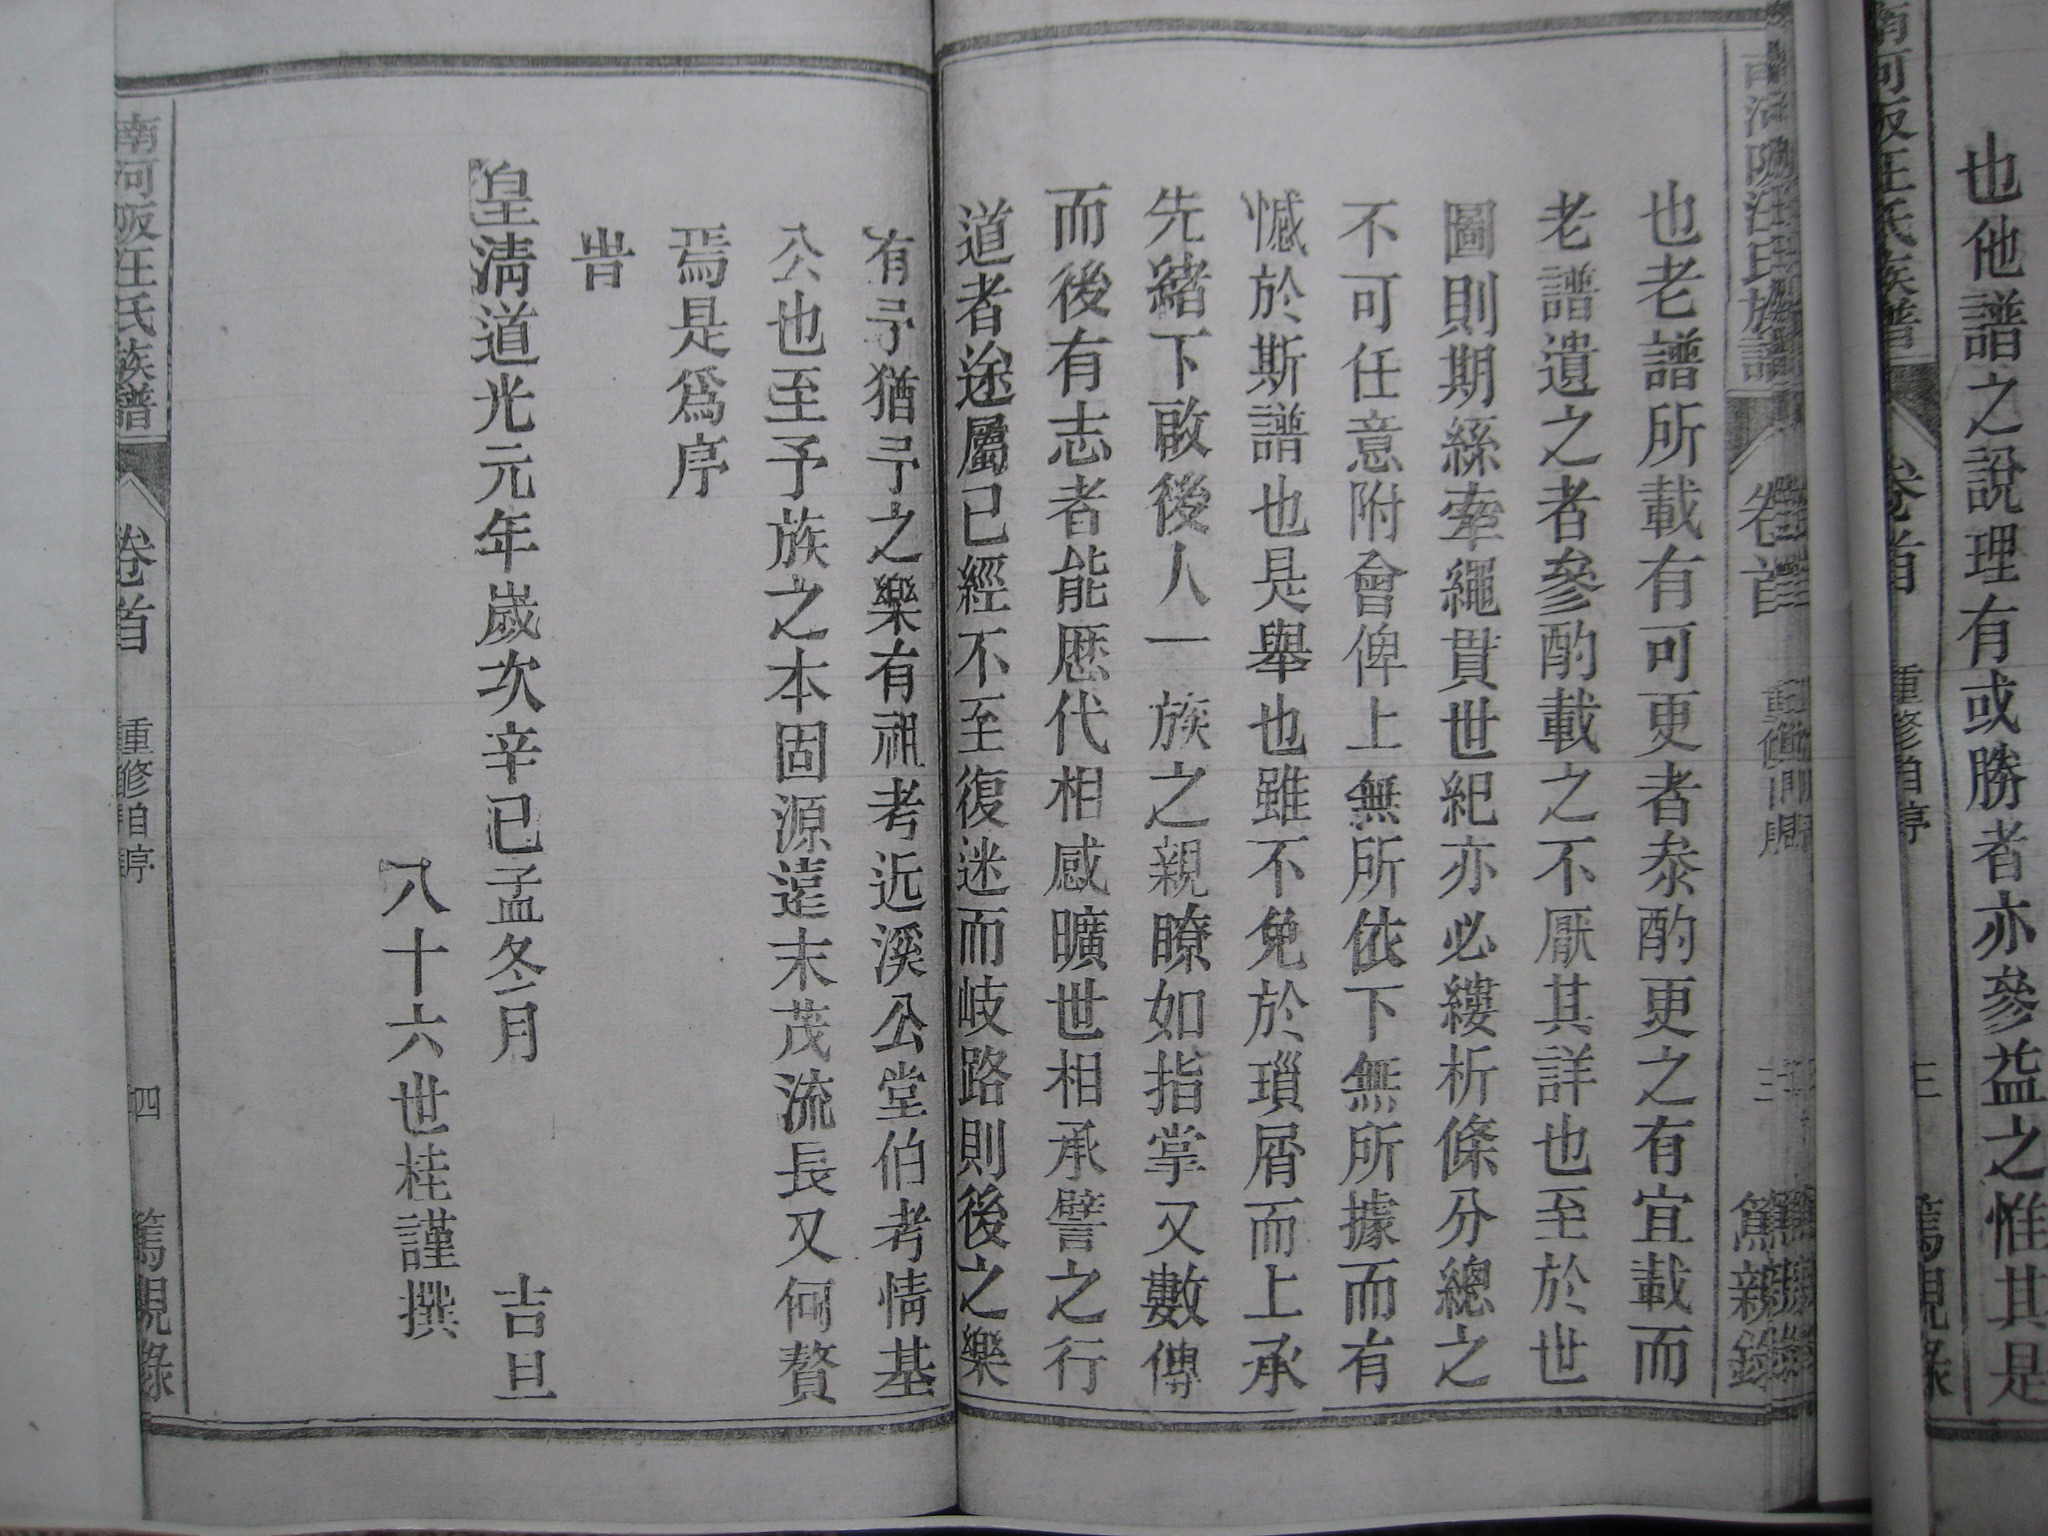 也他譜之說理有或勝者亦參益之惟其是
南河阪汪氏族譜 卷首 重修自序 三 篤親錄
也老譜所載有可更者叅酌更之有宜載而
老譜遺之者參酌載之不厭其詳也至於世
圖則期絲牽繩貫世紀亦必縷析條分總之
不可任意附會俾上無所依下無所據而有
憾於斯譜也是舉也雖不免於瑣屑而上承
先緒下啟後人一族之親瞭如指掌又數傳
而後有志者能歷代相感曠世相承譬之行
道者途屬已經不至復迷而岐路則後之樂
有予猶予之樂有祖考近溪公堂伯考情基
公也至予族之本固源遠末茂流長又何贅
焉是爲序
旹
皇清道光元年歲次辛巳孟冬月 吉旦
八十六世桂謹撰
南河阪汪氏族譜 卷首 重修自序 四 篤親錄